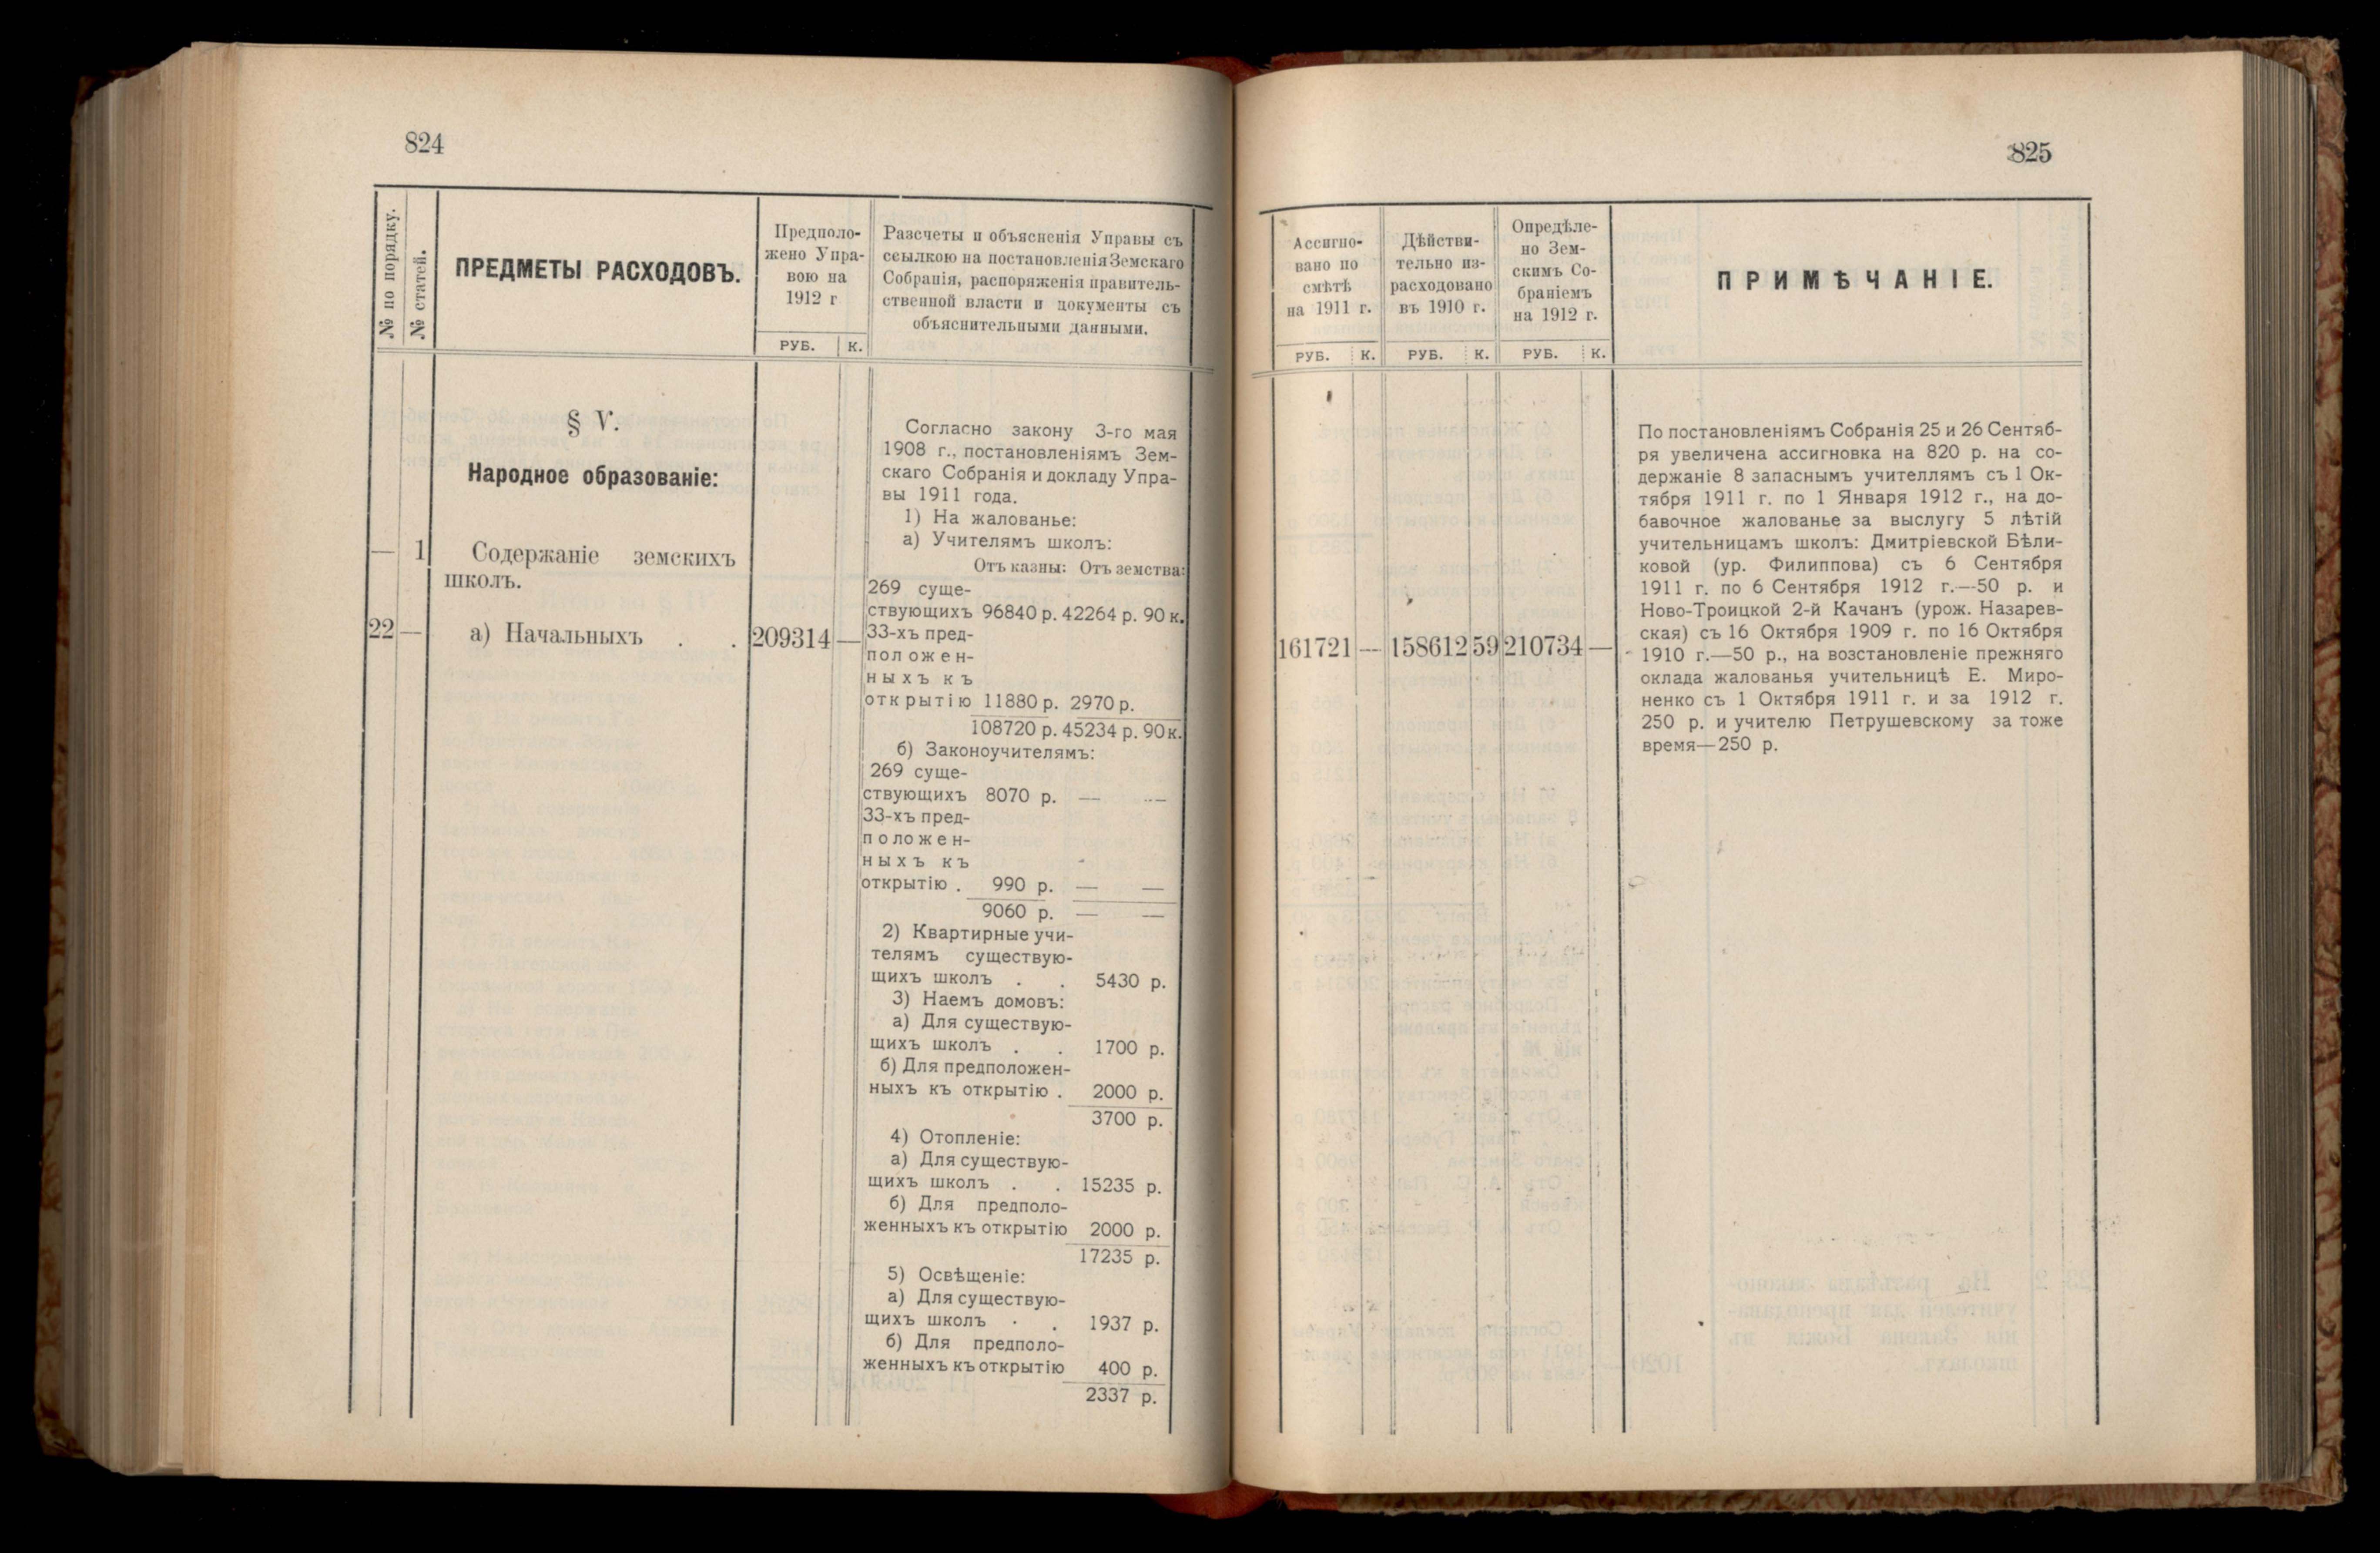 824
№ по порядку.
№ статей.
ПРЕДМЕТЫ РАСХОДОВЪ.
Предполо-
жено Упра-
вою на
1912 г
РУБ. К.
Разсчеты и объясненія Управы съ
ссылкою на постановленія Земскаго
Собранія, распоряженія правитель-
ственной власти и документы съ
объяснительными данными.
§ V.
Народное образованіе:
— 1 Содержаніе земскихъ
школъ.
22 — а) Начальныхъ . . 209314 —
Согласно закону 3-го мая
1908 г., постановленіямъ Зем-
скаго Собранія и докладу Упра-
вы 1911 года.
1) На жалованье:
а) Учителямъ школъ:
Отъ казны: Отъ земства:
269 суще-
ствующихъ 96840 р. 42264 р. 90 к.
33-хъ пред-
положен-
ныхъ къ
открытію 11880 р. 2970 р.
108720 р. 45234 р. 90 к.
б) Законоучителямъ:
269 суще-
ствующихъ 8070 р. — —
33-хъ пред-
положен-
ныхъ къ
открытію . 990 р. — —
9060 р. — —
2) Квартирные учи-
телямъ существую-
щихъ школъ . . 5430 р.
3) Наемъ домовъ:
а) Для существую-
щихъ школъ . . 1700 р.
б) Для предположен-
ныхъ къ открытію . 2000 р.
3700 р.
4) Отопленіе:
а) Для существую-
щихъ школъ . . 15235 р.
б) Для предполо-
женныхъ къ открытію 2000 р.
17235 р.
5) Освѣщеніе:
а) Для существую-
щихъ школъ . . 1937 р.
б) Для предполо-
женныхъ къ открытію 400 р.
2337 р.
825
Ассигно-
вано по
смѣтѣ
на 1911 г.
РУБ. К.
Дѣйстви-
тельно из-
расходовано
въ 1910 г.
РУБ. К.
Опредѣле-
но Зем-
скимъ Со-
браніемъ
на 1912 г.
РУБ. К.
ПРИМѢЧАНІЕ.
161721 — 158612 59 210734 —
По постановленіямъ Собранія 25 и 26 Сентяб-
ря увеличена ассигновка на 820 р. на со-
держаніе 8 запаснымъ учителлямъ съ 1 Ок-
тября 1911 г. по 1 Января 1912 г., на до-
бавочное жалованье за выслугу 5 лѣтій
учительницамъ школъ: Дмитріевской Бѣли-
ковой (ур. Филиппова) съ 6 Сентября
1911 г. по 6 Сентября 1912 г.—50 р. и
Ново-Троицкой 2-й Качанъ (урож. Назарев-
ская) съ 16 Октября 1909 г. по 16 Октября
1910 г.—50 р., на возстановленіе прежняго
оклада жалованья учительницѣ Е. Миро-
ненко съ 1 Октября 1911 г. и за 1912 г.
250 р. и учителю Петрушевскому за тоже
время—250 р.